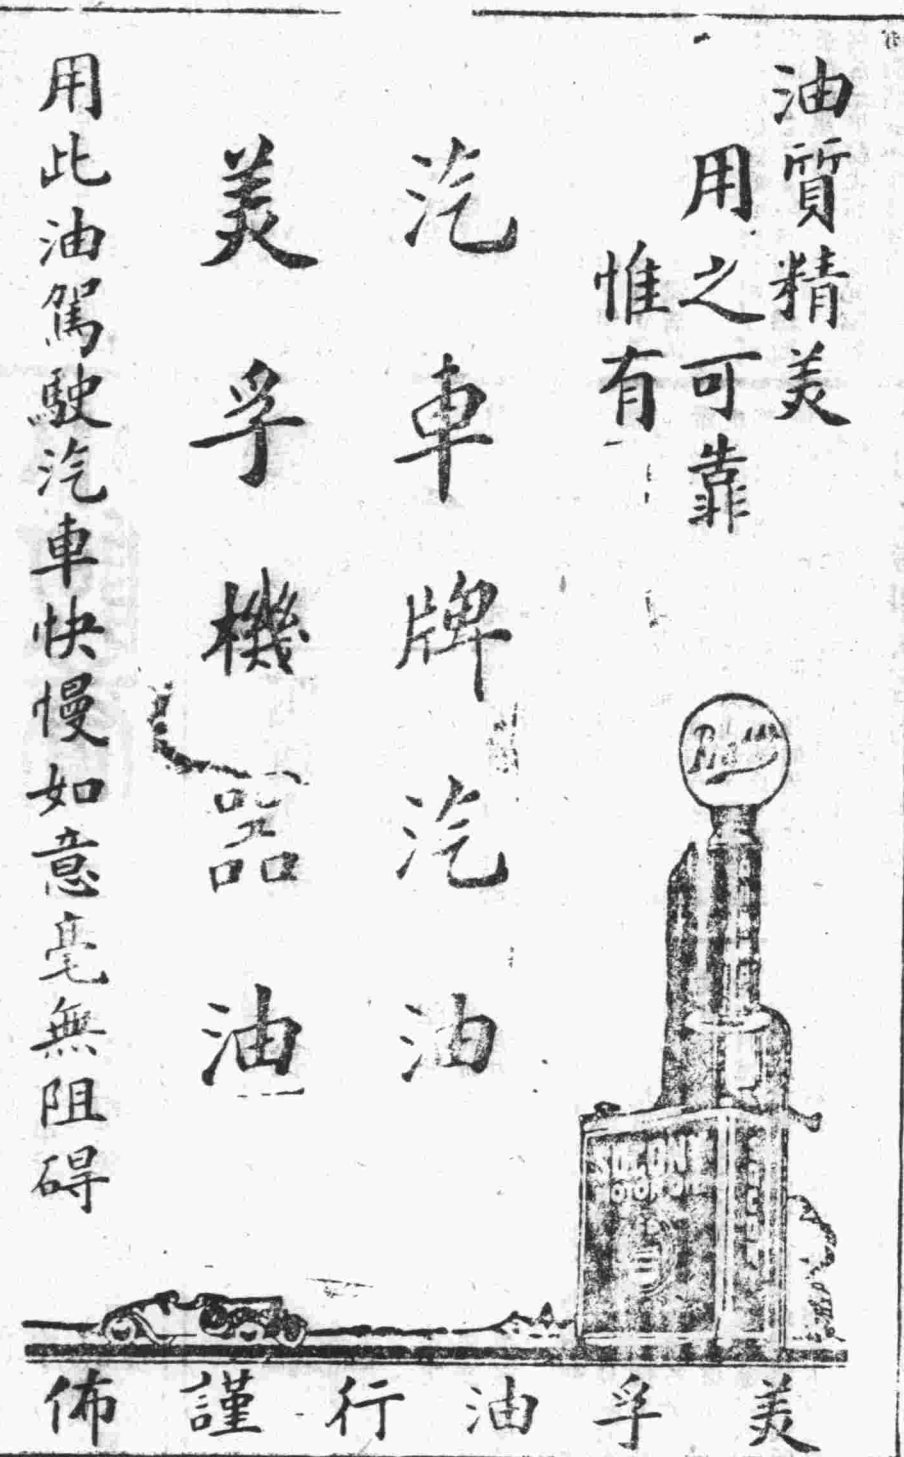 油質精美
用之可靠
惟有
汽車牌汽油
美孚機器油
用此油駕駛汽車快慢如意毫無阻碍
SOCONY
MOTOR OIL
美孚油行謹佈